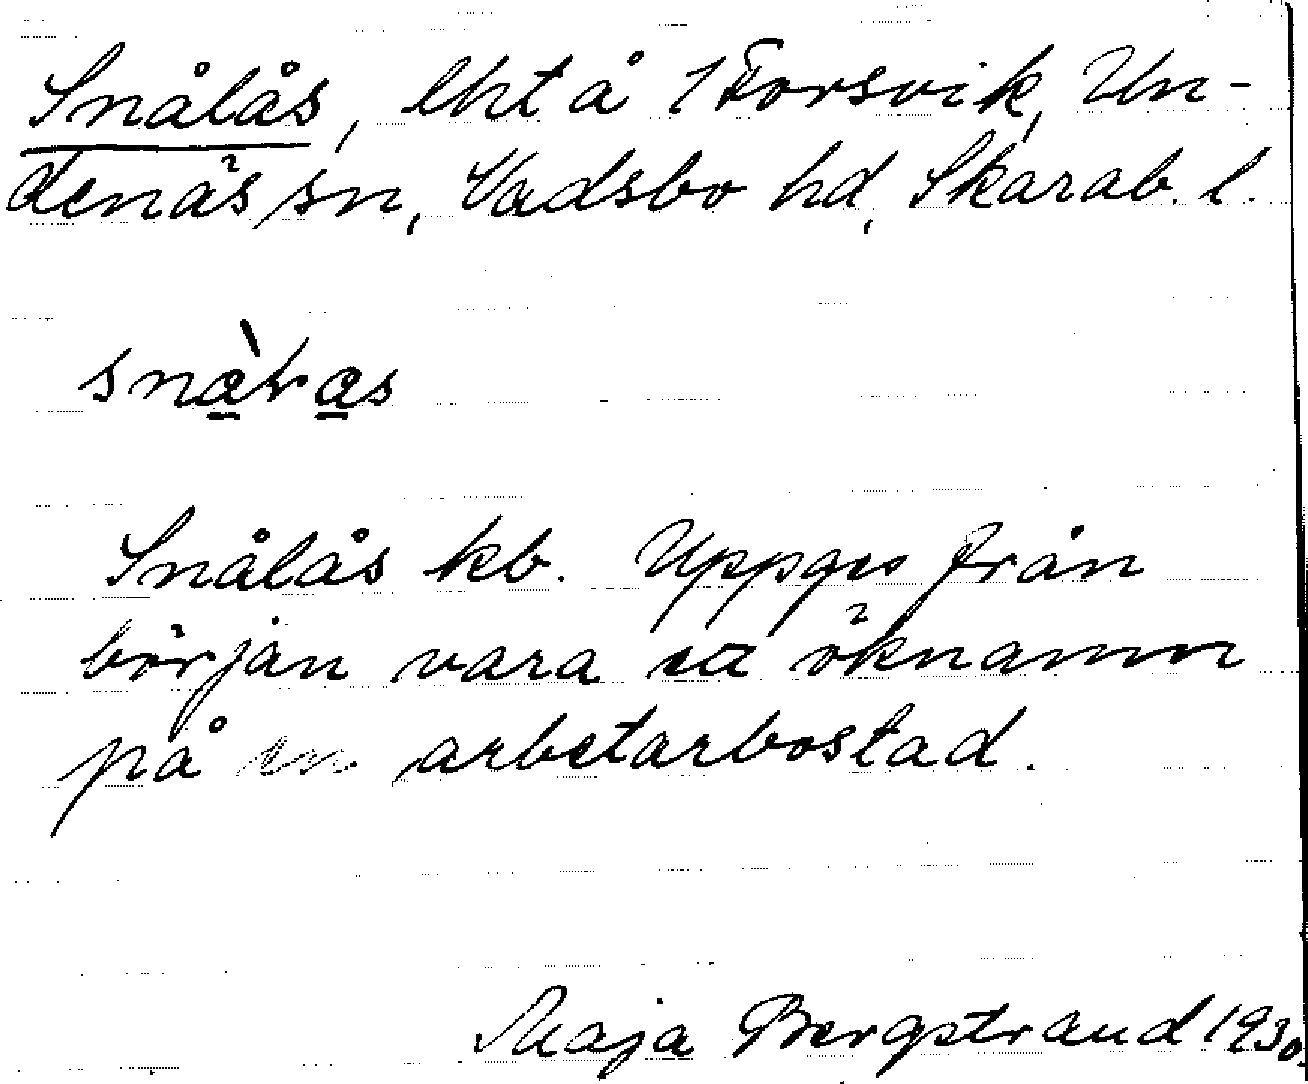 Snålås, lht å 1 Forsvik, Un-
denäs sn, Vadsbo hd, Skarab. l.
Snålås kb. Uppges från
början vara ett öknamn
på en arbetarbostad.
Maja Bergstrand 1930.